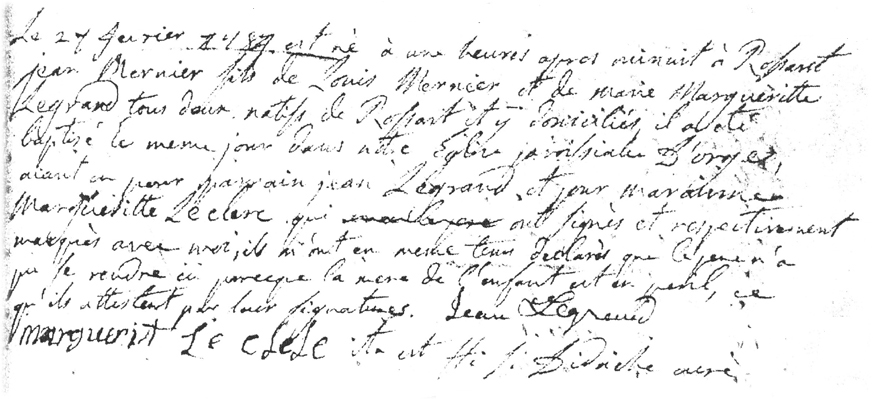 Le 27 fevrier 1787 est né à une heures apres minuit à Rossart
jean Mernier fils de Louis Mernier et de marie Margueritte
Legrand tous deux natifs de Rossart et y domiciliés, il a été
baptizé le meme jour dans notre Eglise paroissiale D'orgeo,
aiant eu pour parrain jean Legrand et pour maraine
Margueritte Leclerc qui ont signés et respectivement
marqués avec moi, ils m'ont en meme tems declarés que le pere n'a
pu se rendre ici parceque la mere de l'enfant est en peril, ce
qu'ils attestent par leur signatures. Jean Legrand
marguerit Le cLeLe ita est curé